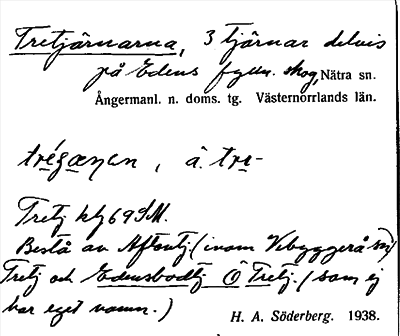 Tretjärnarna, 3 tjärnar delvis
på Edens fylln. skog, Nätra sn.
Ångermanl. n. doms. tg. Västernorrlands län.
, å. tre-
Tretj kbl 69 SM.
Består av Aftontj. (inom Vibyggerå sn)
Tretj och Edensbodtj Ö Tretj. (som ej
har eget namn.)
H. A. Söderberg. 1938.